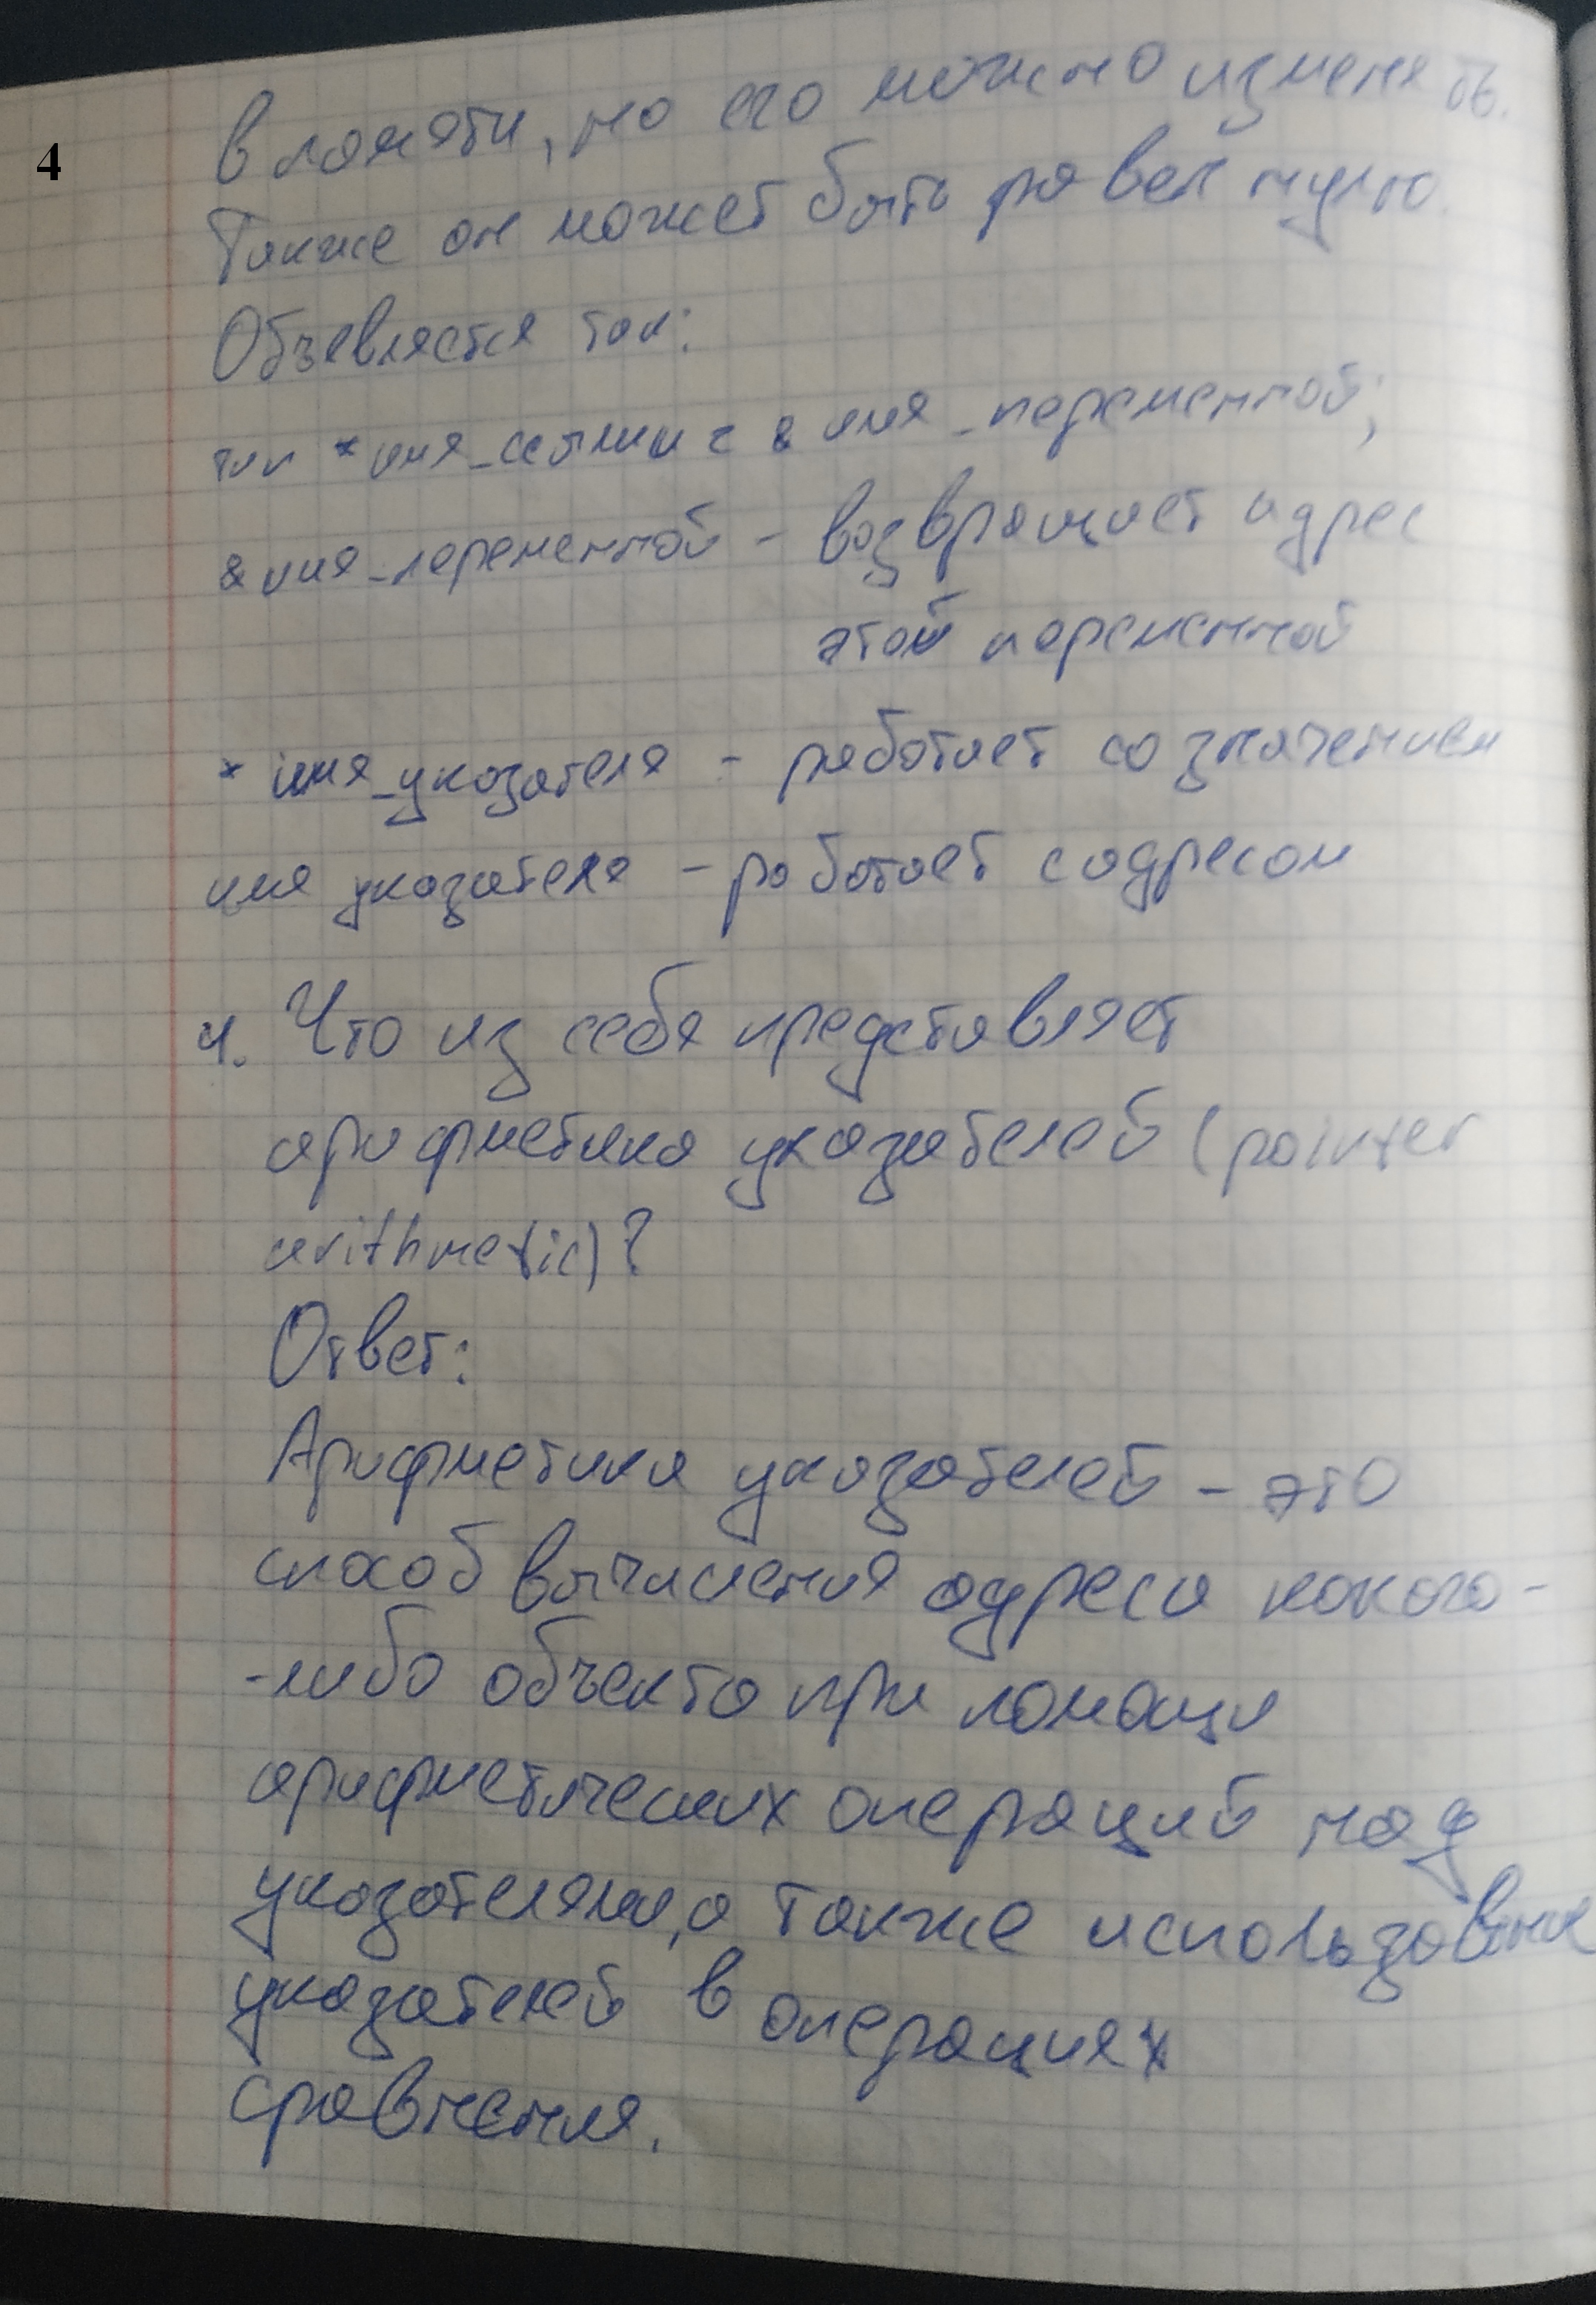 4
в памяти, но его можно изменять.
Также он может быть равен нулю.
Объевляется так:
тип *имя_ссылки = &имя_переменной;
&имя_переменной - возвращает адрес
этой переменной
* имя_указателя - работает со значением
имя указателя - работает с адресом
4. Что из себя представляет
арифметика указателей (pointer
arithmetic)?
Ответ:
Арифметика указателей - это
способ вычисления адреса какого-
-либо объекта при помощи
арифметических операций над
указателями, а также использование
указателей в операциях
сравнения.